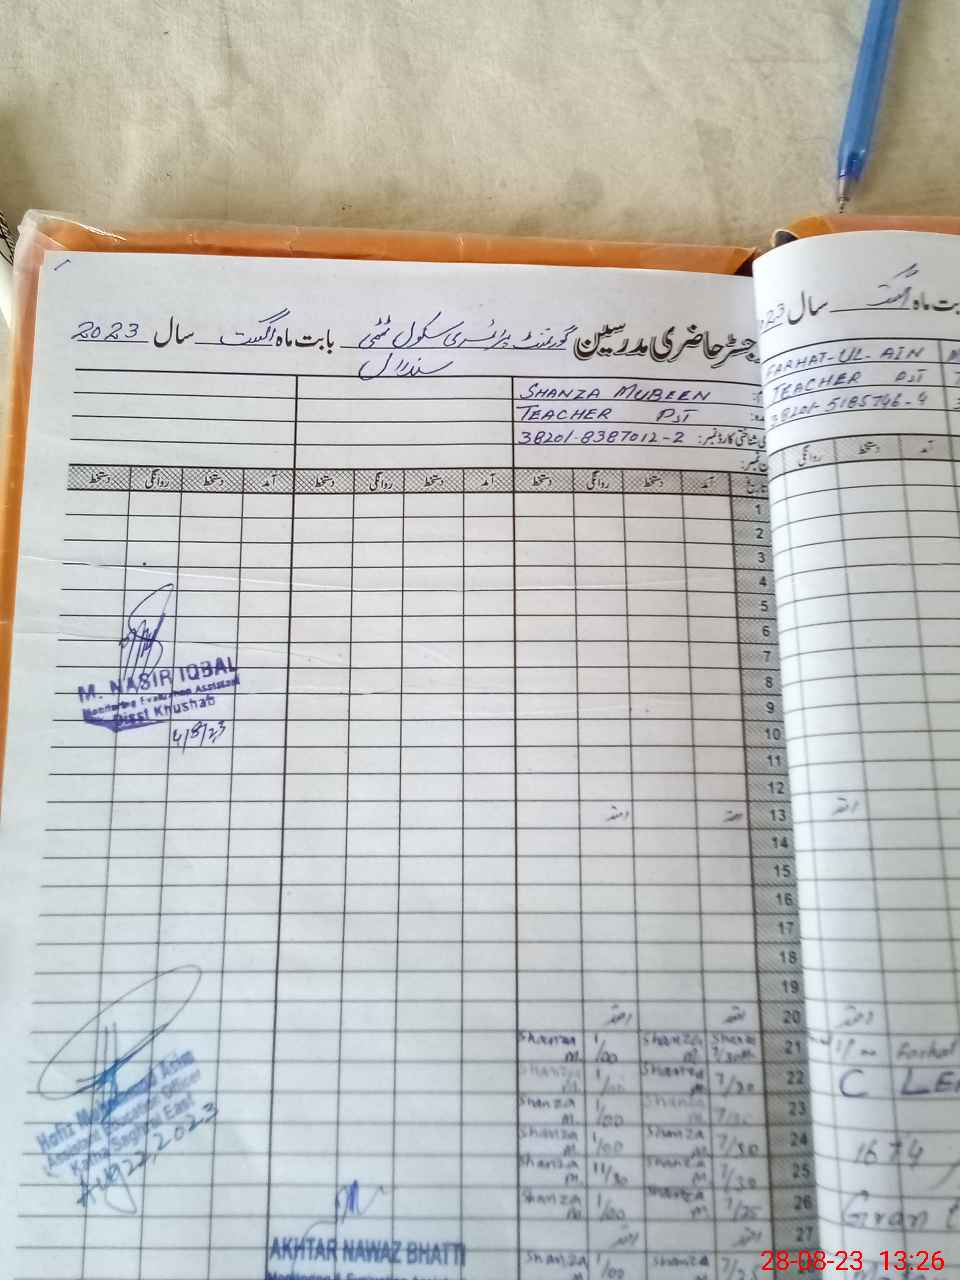 رجسٹر حاضری مدرسین گورنمنٹ پرائمری سکول ٹھٹھی بابت ماہ اگست سال 2023
سندرال
SHANZA MUBEEN
TEACHER PST
شناختی کارڈ نمبر: 38201-8387012-2
تاریخ آمد دستخط روانگی دستخط آمد دستخط روانگی دستخط آمد دستخط روانگی دستخط
1
2
3
4
5
6
7
8
9
10
11
12
13 اتوار اتوار
14
15
16
17
18
19
20 اتوار اتوار
21 Shanza 7/30 Shanza M. 1/00 Shanza M.
22 7/30 Shanza M. 1/00 Shanza M.
23 Shanza M. 1/00 Shanza M.
24 7/30 Shanza M. 1/00 Shanza M.
25 7/30 Shanza M. 11/30 Shanza M.
26 7/25 Shanza M. 1/00 Shanza M.
27 اتوار اتوار
Shanza 1/00 Shanza
M. NASIR IQBAL
Monitoring Evaluation Assistant
Disst Khushab
4/8/23
Hafiz Muhammad Asim
Assistant Education Officer
Katha Saghral East
Aug 22, 2023
AKHTAR NAWAZ BHATTI
ماہ اگست سال
FARHAT-UL-AIN
TEACHER PST
38201-5185746-4
آمد دستخط روانگی
اتوار
Farhat
C LE
1674
Gran
28-08-23 13:26